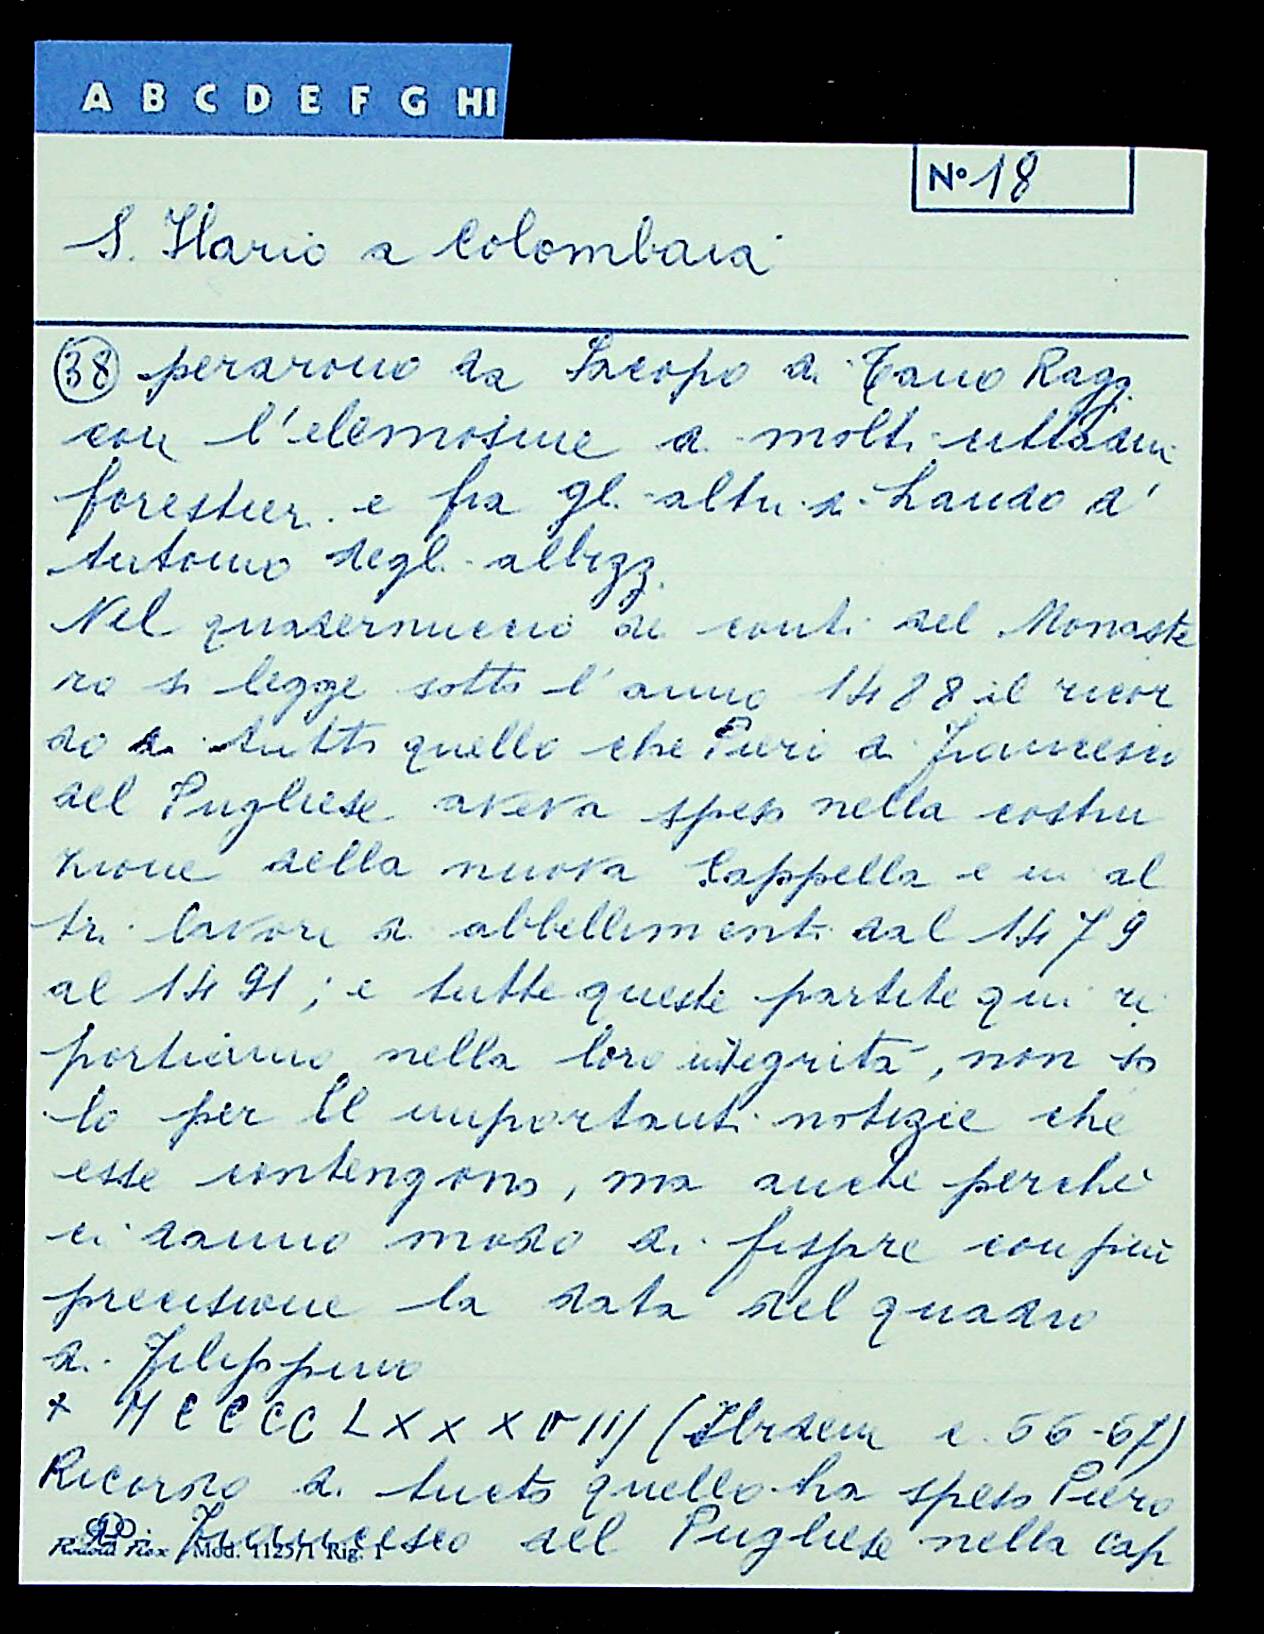 A B C D E F G HI
Nº 18
S. Ilario a Colombaia
38 perarono da Iacopo di Tano Ragz.
con l'elemosine di molti cittadini
forestieri e fra gli altri di Lando d'
Antonio degli Albizzi.
Nel quadernuccio di conti del Monaste
ro si legge sotto l'anno 1488 il ricor
do di tutto quello che Pieri di Francesco
del Pugliese aveva speso nella costru
zione della nuova Cappella e in al
tri lavori di abbellimenti dal 1479
al 1491; e tutte queste partite qui ri
portiamo nella loro integrità, non so
lo per le importanti notizie che
esse contengono, ma anche perché
ci danno modo di fissare con più
precisione la data del quadro
di Filippino
+ MCCCCLXXXVIII (Ibidem c. 56-57)
Ricordo di tucto quello ha speso Piero
di Francesco del Pugliese nella cap
Rotolo Flex Mod. 1125/1 Rig. 1